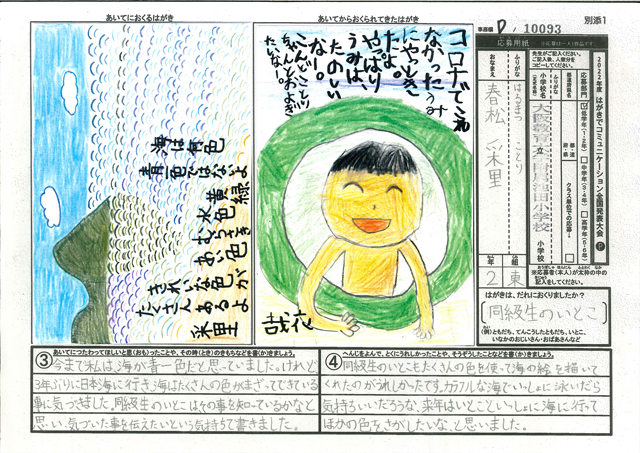 別添1
事務局
P/10093
2022年度 はがきでコミュニケーション全国発表大会
応募用紙
応募部門
低学年(1・2年)
中学年(3・4年)
高学年(5・6年)
クラス単位での応募
都道府県名
ふりがな
小学校名
立
小学校
ふりがな
おなまえ
春松 采里
2年
東組
※応募者(本人)が太枠の中の
記入をしてください。
はがきは、だれにおくりましたか?
同級生のいとこ
(例)ともだち、てんこうしたともだち、いとこ、
いなかのおじいさん・おばあさんなど
あいてにおくるはがき
海は青色
青一色ではないよ
緑
黄色
水色
むらさき
あい色
きれいな色が
たくさんあるよ
采里
あいてからおくられてきたはがき
コロナでこれ
なかったうみ
にやっときた
たよ。
やっぱり
うみは、
たのしい
なー。
こんど、ことり
ちゃんとおよぎ
たいなー。
哉花
③あいてにつたわってほしいと思(おも)ったことや、その時(とき)のきもちなどを書(か)きましょう。
今まで私は、海が青一色だと思っていました。けれど
3年ぶりに日本海に行き、海はたくさんの色がまざってできている
事に気づきました。同級生のいとこはその事を知っているかなと
思い、気づいた事を伝えたいという気持ちで書きました。
④へんじをよんで、とくにうれしかったことや、そうぞうしたことなどを書(か)きましょう。
同級生のいとこもたくさんの色を使って海の絵を描いて
くれたのがうれしかったです。カラフルな海でいっしょに泳いだら
気持ちいいだろうな、来年はいとこといっしょに海に行って
ほかの色をさがしたいな、と思いました。